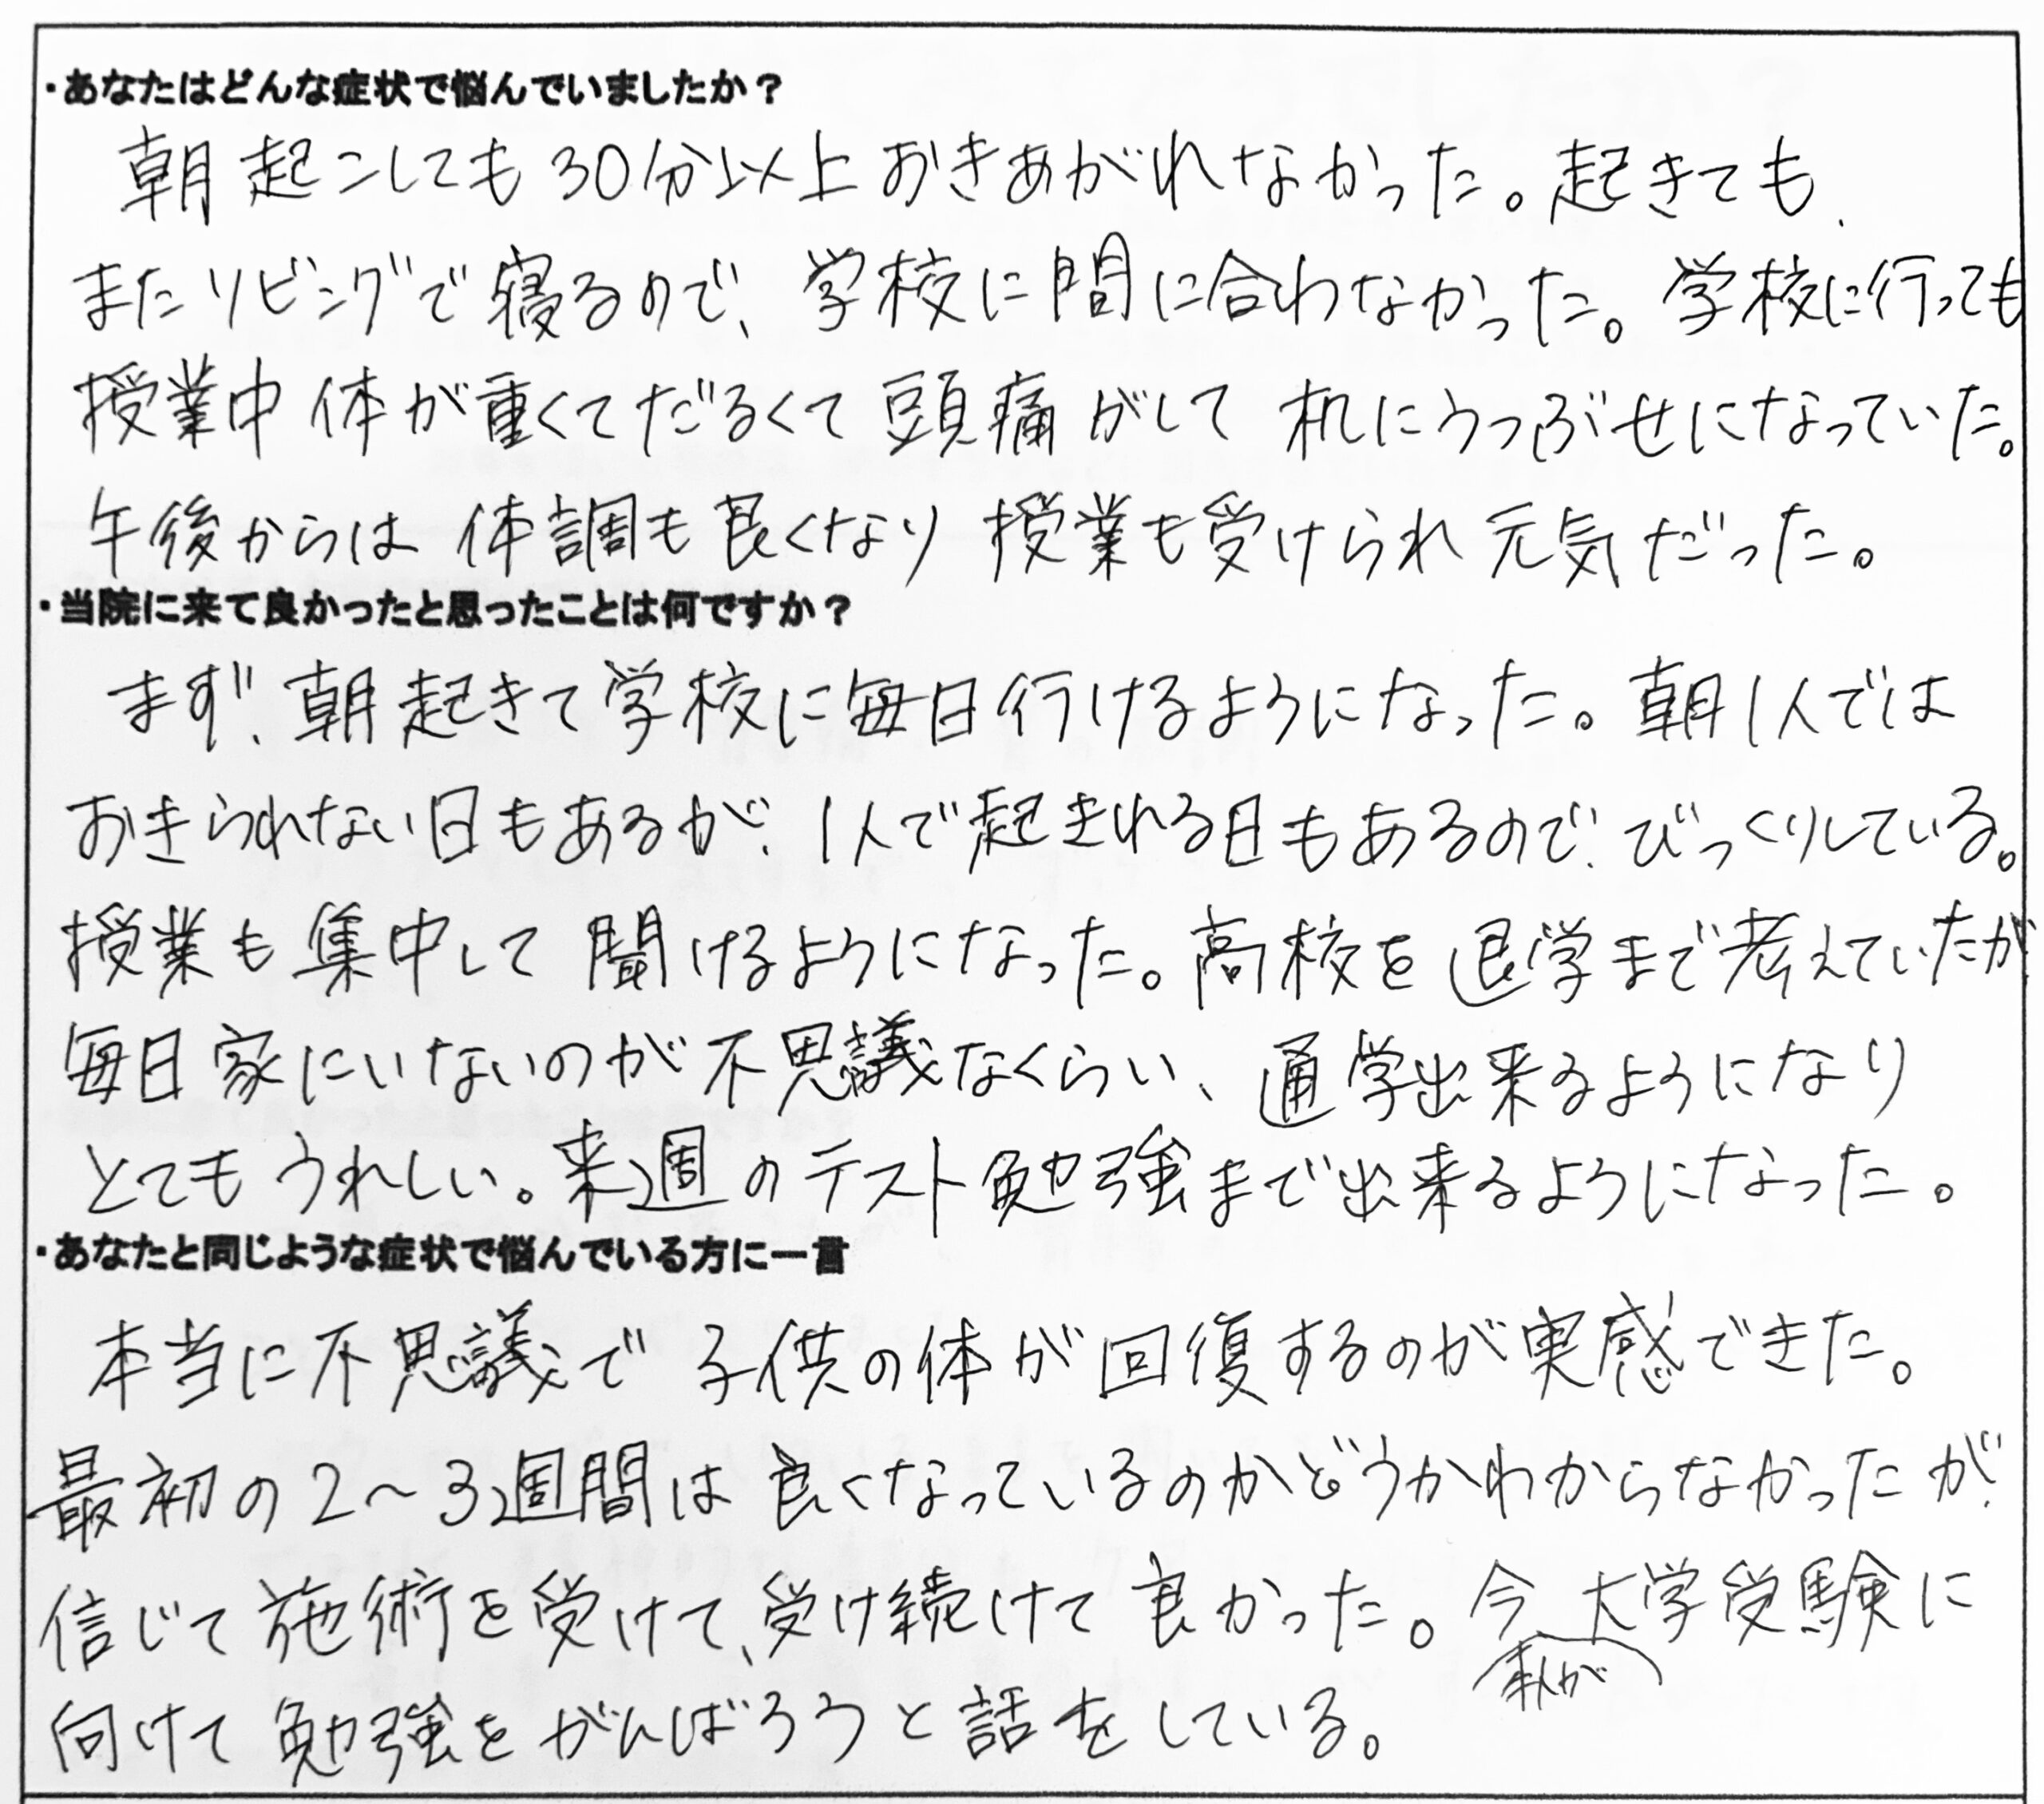 ・あなたはどんな症状で悩んでいましたか？
朝起こしても30分以上おきあがれなかった。起きても、
またリビングで寝るので、学校に間に合わなかった。学校に行っても
授業中体が重くてだるくて頭痛がして机にうつぶせになっていた。
午後からは体調も良くなり授業も受けられ元気だった。
・当院に来て良かったと思ったことは何ですか？
まず、朝起きて学校に毎日行けるようになった。朝1人では
おきられない日もあるが、1人で起きれる日もあるので、びっくりしている。
授業も集中して聞けるようになった。高校を退学まで考えていたが
毎日家にいないのが不思議なくらい、通学出来るようになり
とてもうれしい。来週のテスト勉強まで出来るようになった。
・あなたと同じような症状で悩んでいる方に一言
本当に不思議で子供の体が回復するのが実感できた。
最初の2〜3週間は良くなっているのかどうかわからなかったが、
信じて施術を受けて、受け続けて良かった。今、大学受験に
本人が
向けて勉強をがんばろうと話をしている。